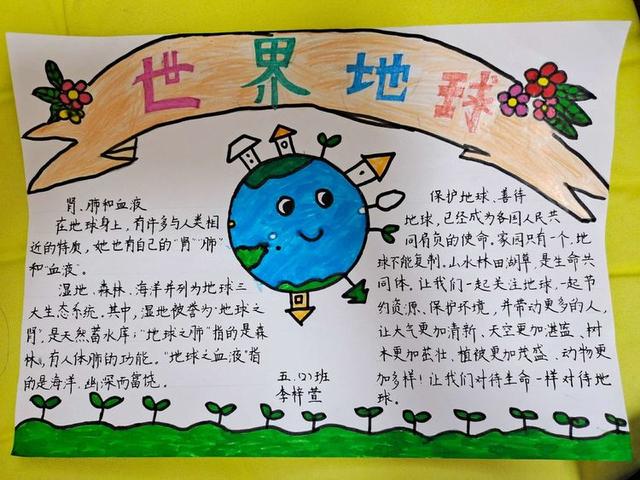 世界地球
肾、肺和血液
在地球身上，有许多与人类相
近的特质，她也有自己的“肾”“肺”
和“血液”。
湿地、森林、海洋并列为地球三
大生态系统。其中，湿地被誉为“地球之
肾”，是天然蓄水库；“地球之肺”指的是森
林，有人体肺的功能。“地球之血液”指
的是海洋，幽深而富饶。
五.(1)班
李梓萱
保护地球、善待
地球，已经成为各国人民共
同肩负的使命。家园只有一个，地
球不能复制。山水林田湖草，是生命共
同体。让我们一起关注地球，一起节
约资源、保护环境，并带动更多的人，
让大气更加清新、天空更加湛蓝、树
木更加茁壮、植被更加茂盛、动物更
加多样！让我们对待生命一样对待地
球。